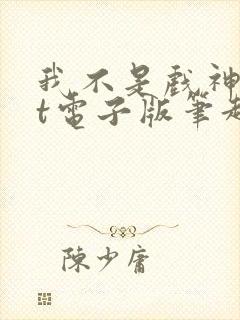 我不是戲神
t電子版筆
陳少庸